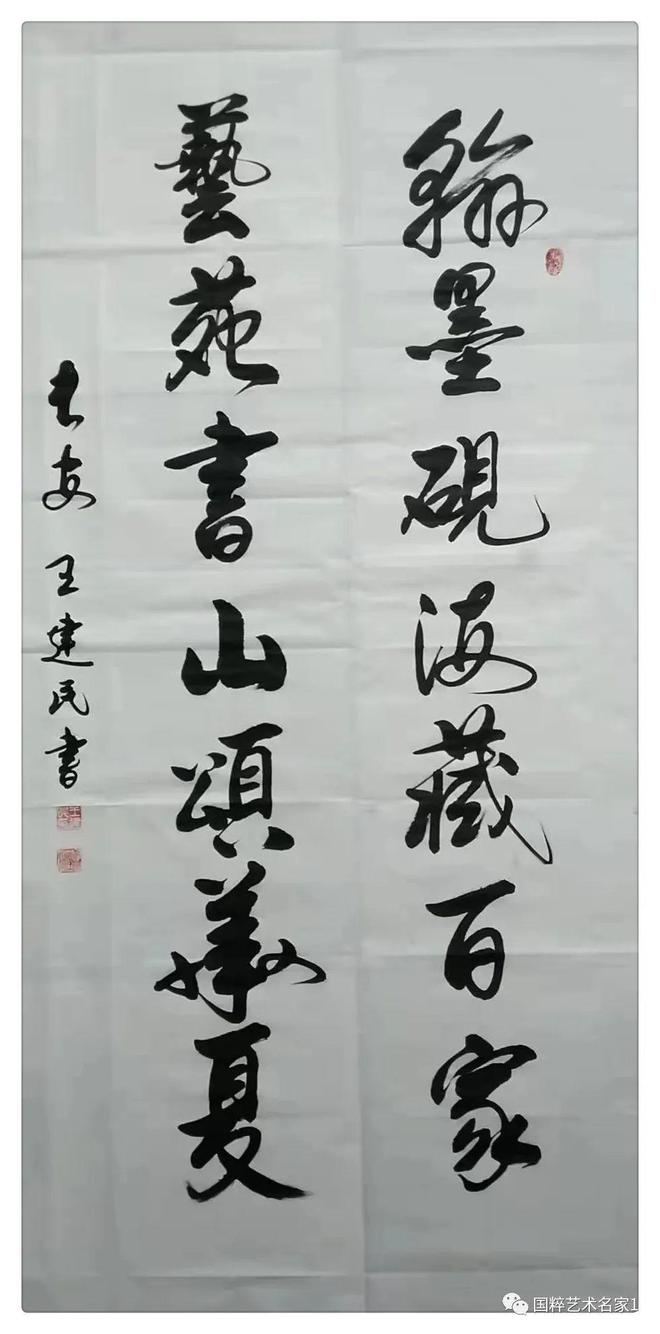 翰墨硯海藏百家
藝苑書山頌華夏
长安 王建民書
国粹艺术名家1